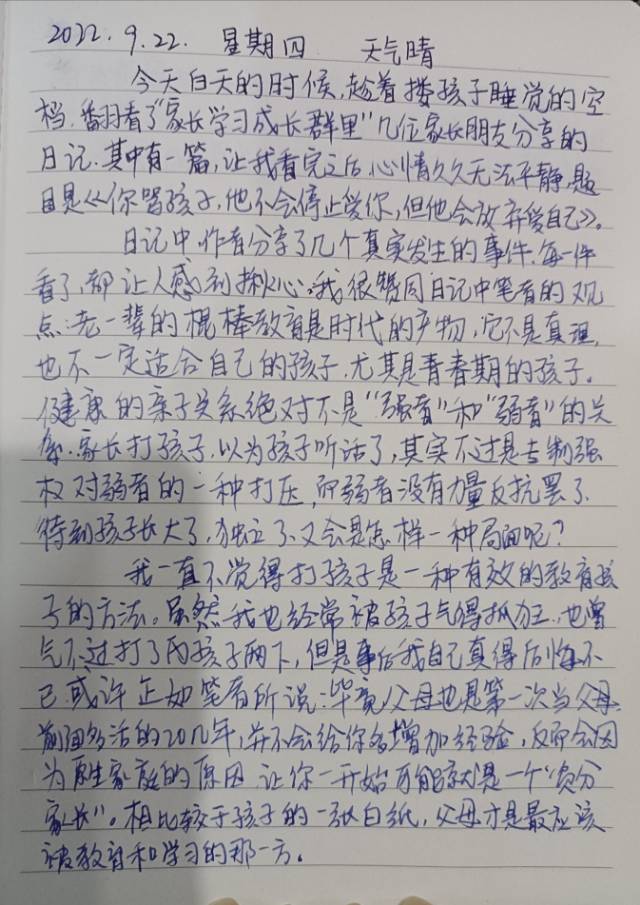 2022.9.22. 星期四 天气晴
今天白天的时候,趁着搂孩子睡觉的空
档,翻看了“家长学习成长群里”几位家长朋友分享的
日记.其中有一篇,让我看完之后,心情久久无法平静,题
目是《你骂孩子,他不会停止爱你,但他会放弃爱自己》。
日记中,作者分享了几个真实发生的事件,每一件
看了,都让人感到揪心。我很赞同日记中笔者的观
点:老一辈的棍棒教育是时代的产物,它不是真理,
也不一定适合自己的孩子,尤其是青春期的孩子。
健康的亲子关系绝对不是“强者”和“弱者”的关
系.家长打孩子,以为孩子听话了,其实不过是专制强
权对弱者的一种打压,而弱者没有力量反抗罢了.
待到孩子长大了,独立了,又会是怎样一种局面呢?
我一直不觉得打孩子是一种有效的教育孩
子的方法。虽然我也经常被孩子气得抓狂,也曾
气不过打了两孩子两下,但是事后我自己真得后悔不
已.或许正如笔者所说:毕竟父母也是第一次当父母,
前面多活的20几年,并不会给你多增加经验,反而会因
为原生家庭的原因,让你一开始可能就是一个“负分
家长”。相比较于孩子的一张白纸,父母才是最应该
被教育和学习的那一方。